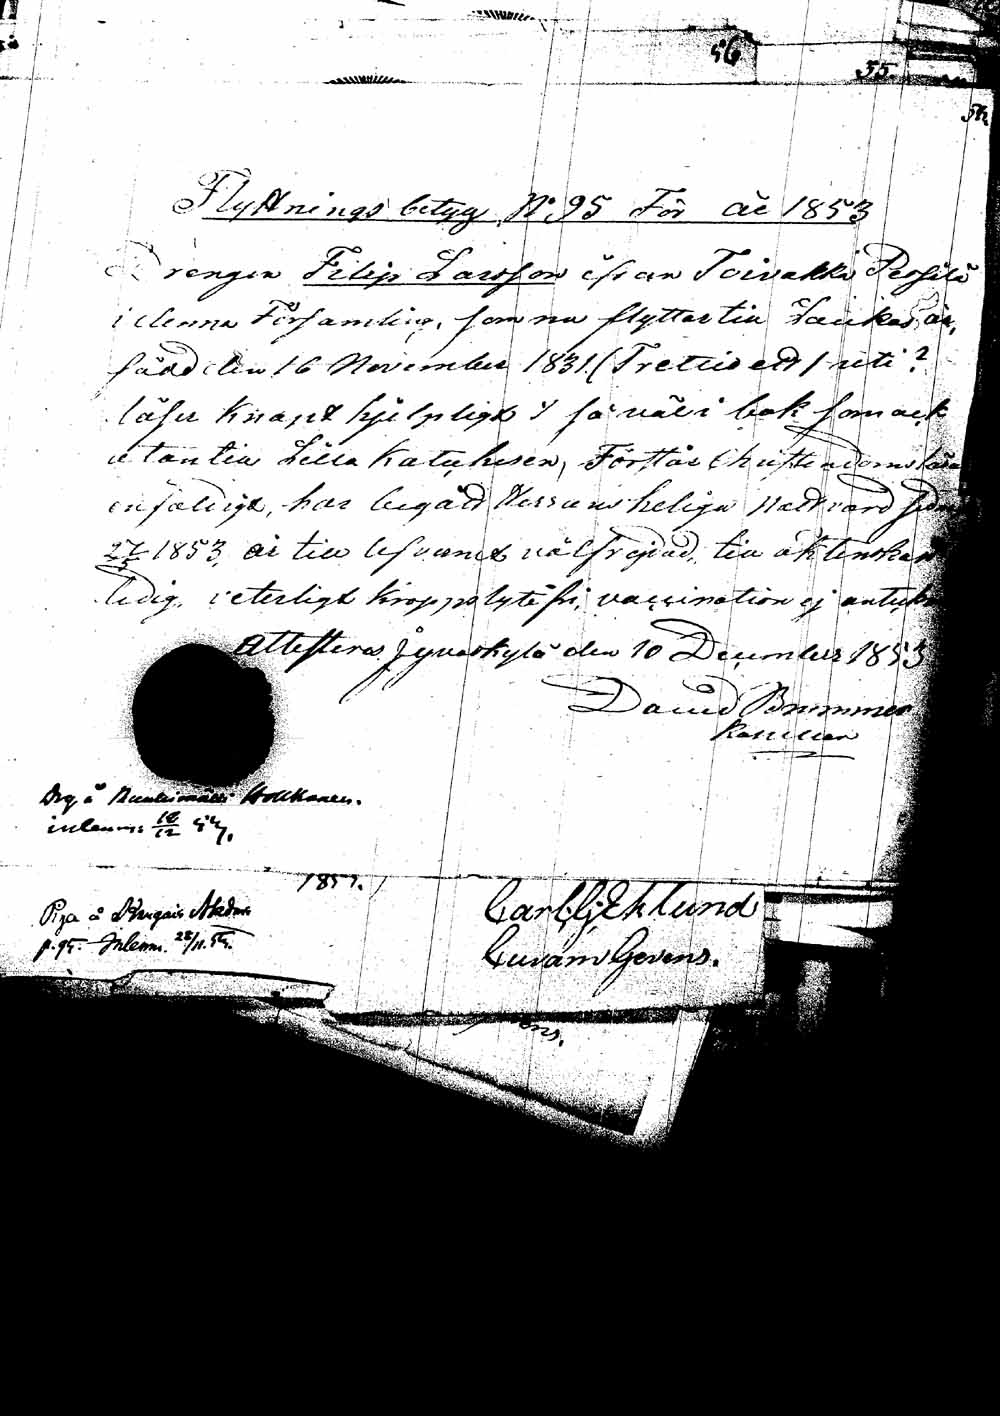 56
55.
54.
Flyttnings betyg No 95 För år 1853
Drengen Filip Larsson ifrån Toivakka Perhilä
i denna Församling, som nu flyttar till Laukas är,
född den 16 November 1831 (Trettio ett) uti ?
läser knapt hjelpligt såväl i bok som ock
utantill Lilla Katechesen, Förstår Christendoms läran
enfaldigt, har begått Herrans heliga Nattvard sedn
27 1853, är till lefvernet välfrejdad, till äktenskap
ledig, veterligt kroppslytefri, vaccination ej antekn
Attesteras Jyväskylä den 10 December 1853
David Brummer
Drg å Hokkanen.
inlemn: 18/12 54.
1857.
Carl G. Eklund
Piga å
p. 95. Inlemn. 28/11. 54.
Curam Gerens.
ens.